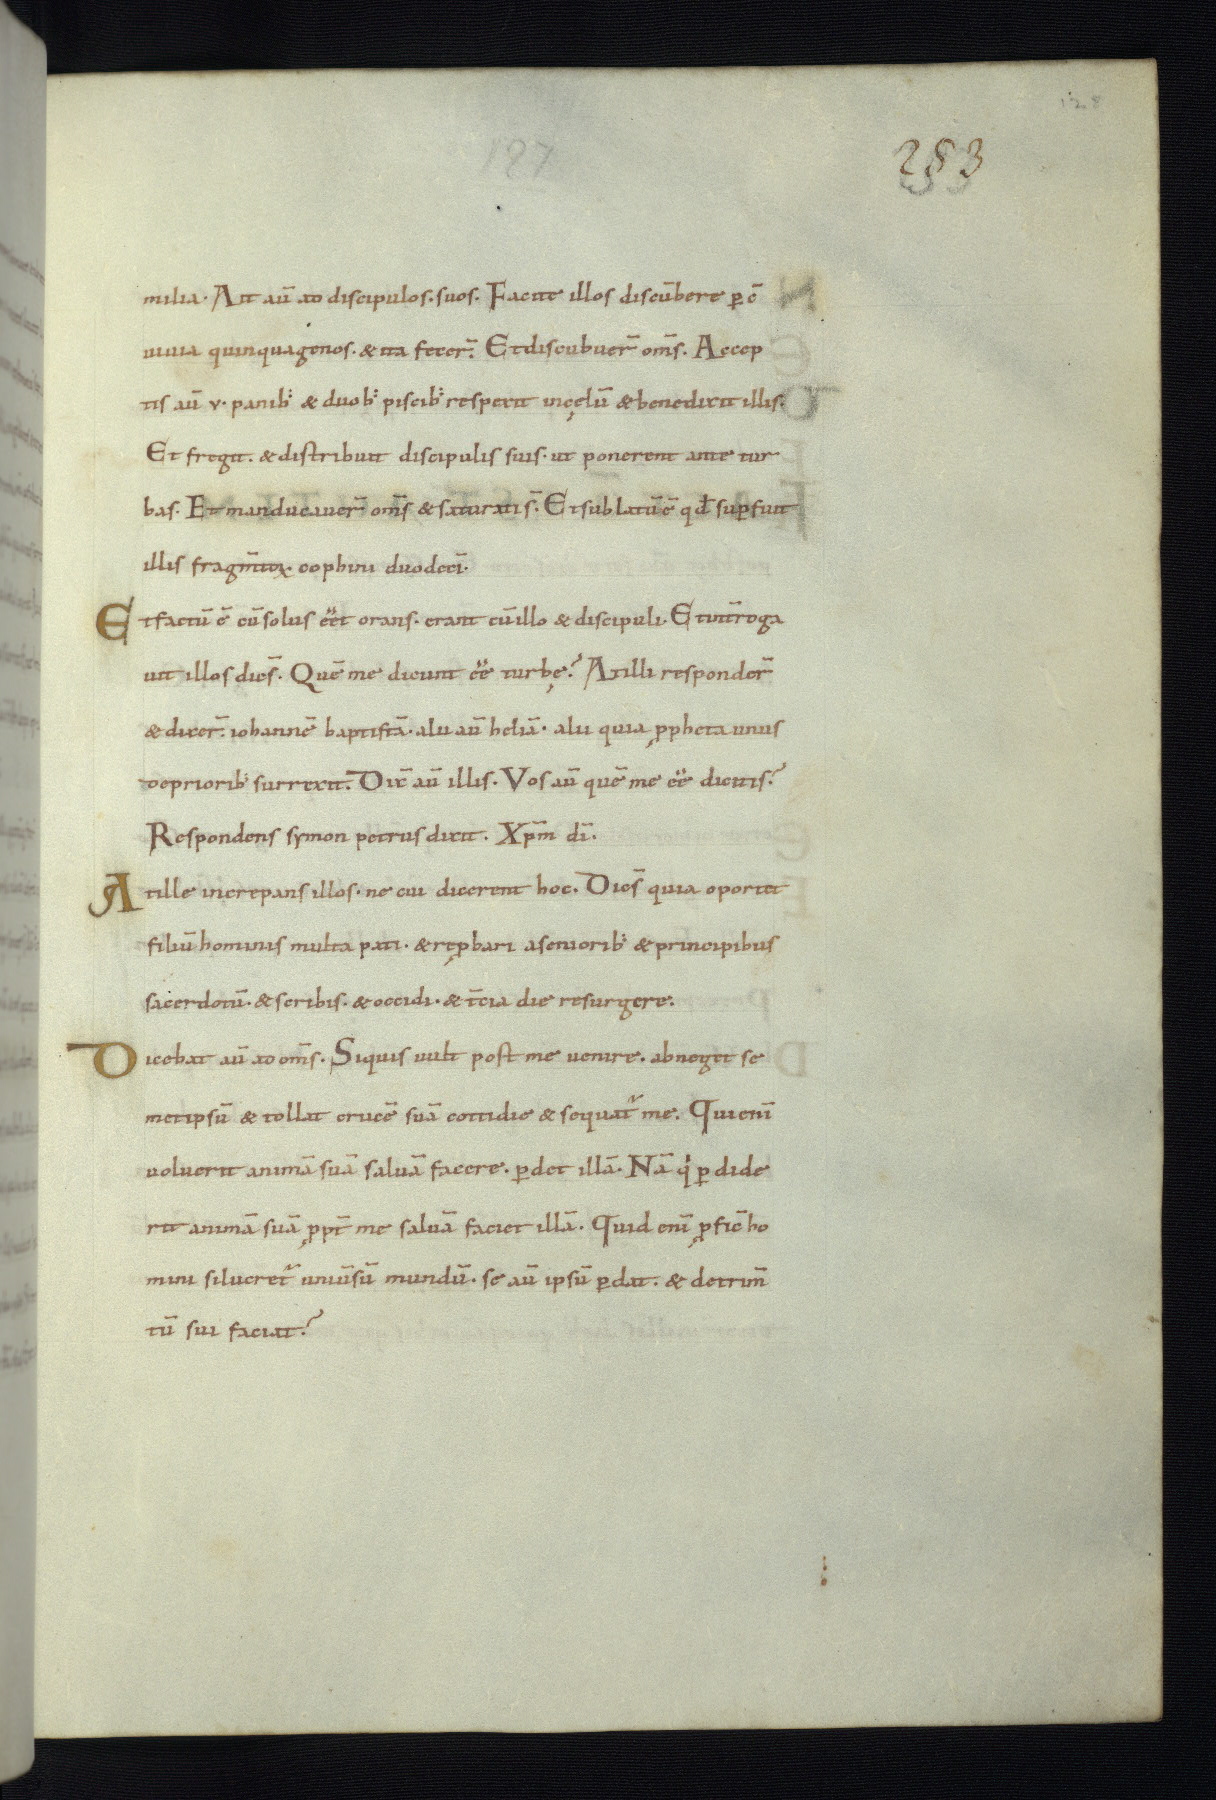 128
127
253
milia. Ait aū ad discipulos. suos. Facite illos discūbere ꝑ c̄
uiuia quinquagenos. & ita fecer̄. Et discubuer̄ om̄s. Accep
tis aū v. panib; & duob; piscib; respexit in cęlū & benedixit illis.
Et fregit. & distribuit discipulis suis. ut ponerent ante tur
bas. Et manducauer̄ om̄s & saturati s̄. Et sublatū ē qd̄ suꝑfuit
illis fragm̄toꝝ cophini duodeci̅.
Et factū ē cū solus eēt orans. erant cū illo & discipuli. Et int̄roga
uit illos dice̅s. Quē me dicunt eē turbę? At illi responder̄
& dixer̄. iohannē baptistā. alii aū heliā. alii quia ꝓpheta unus
de priorib; surrexit. Dix̄ aū illis. Vos aū quē me eē dicitis?
Respondens symon petrus dixit. Xpm̄ di̅.
At ille increpans illos. ne cui dicerent hoc. Dice̅s quia oportet
filiū hominis multa pati. & reꝓbari aseniorib; & principibus
sacerdotū. & scribis. & occidi. & t̄cia die resurgere.
Dicebat aū ad om̄s. Si quis uult post me uenire. abneget se
met ipsū & tollat crucē suā cottidie & sequat᷑ me. Qui eni̅
uoluerit animā suā saluā facere. ꝑdet illā. Nā q̇ ꝑdide
rit animā suā ꝓpt̄ me saluā faciet illā. Quid eni̅ ꝓfic̄ ho
mini si lucret᷑ uniūsū mundū. se aū ipsū ꝑdat. & detrim̄
tū sui faciat?